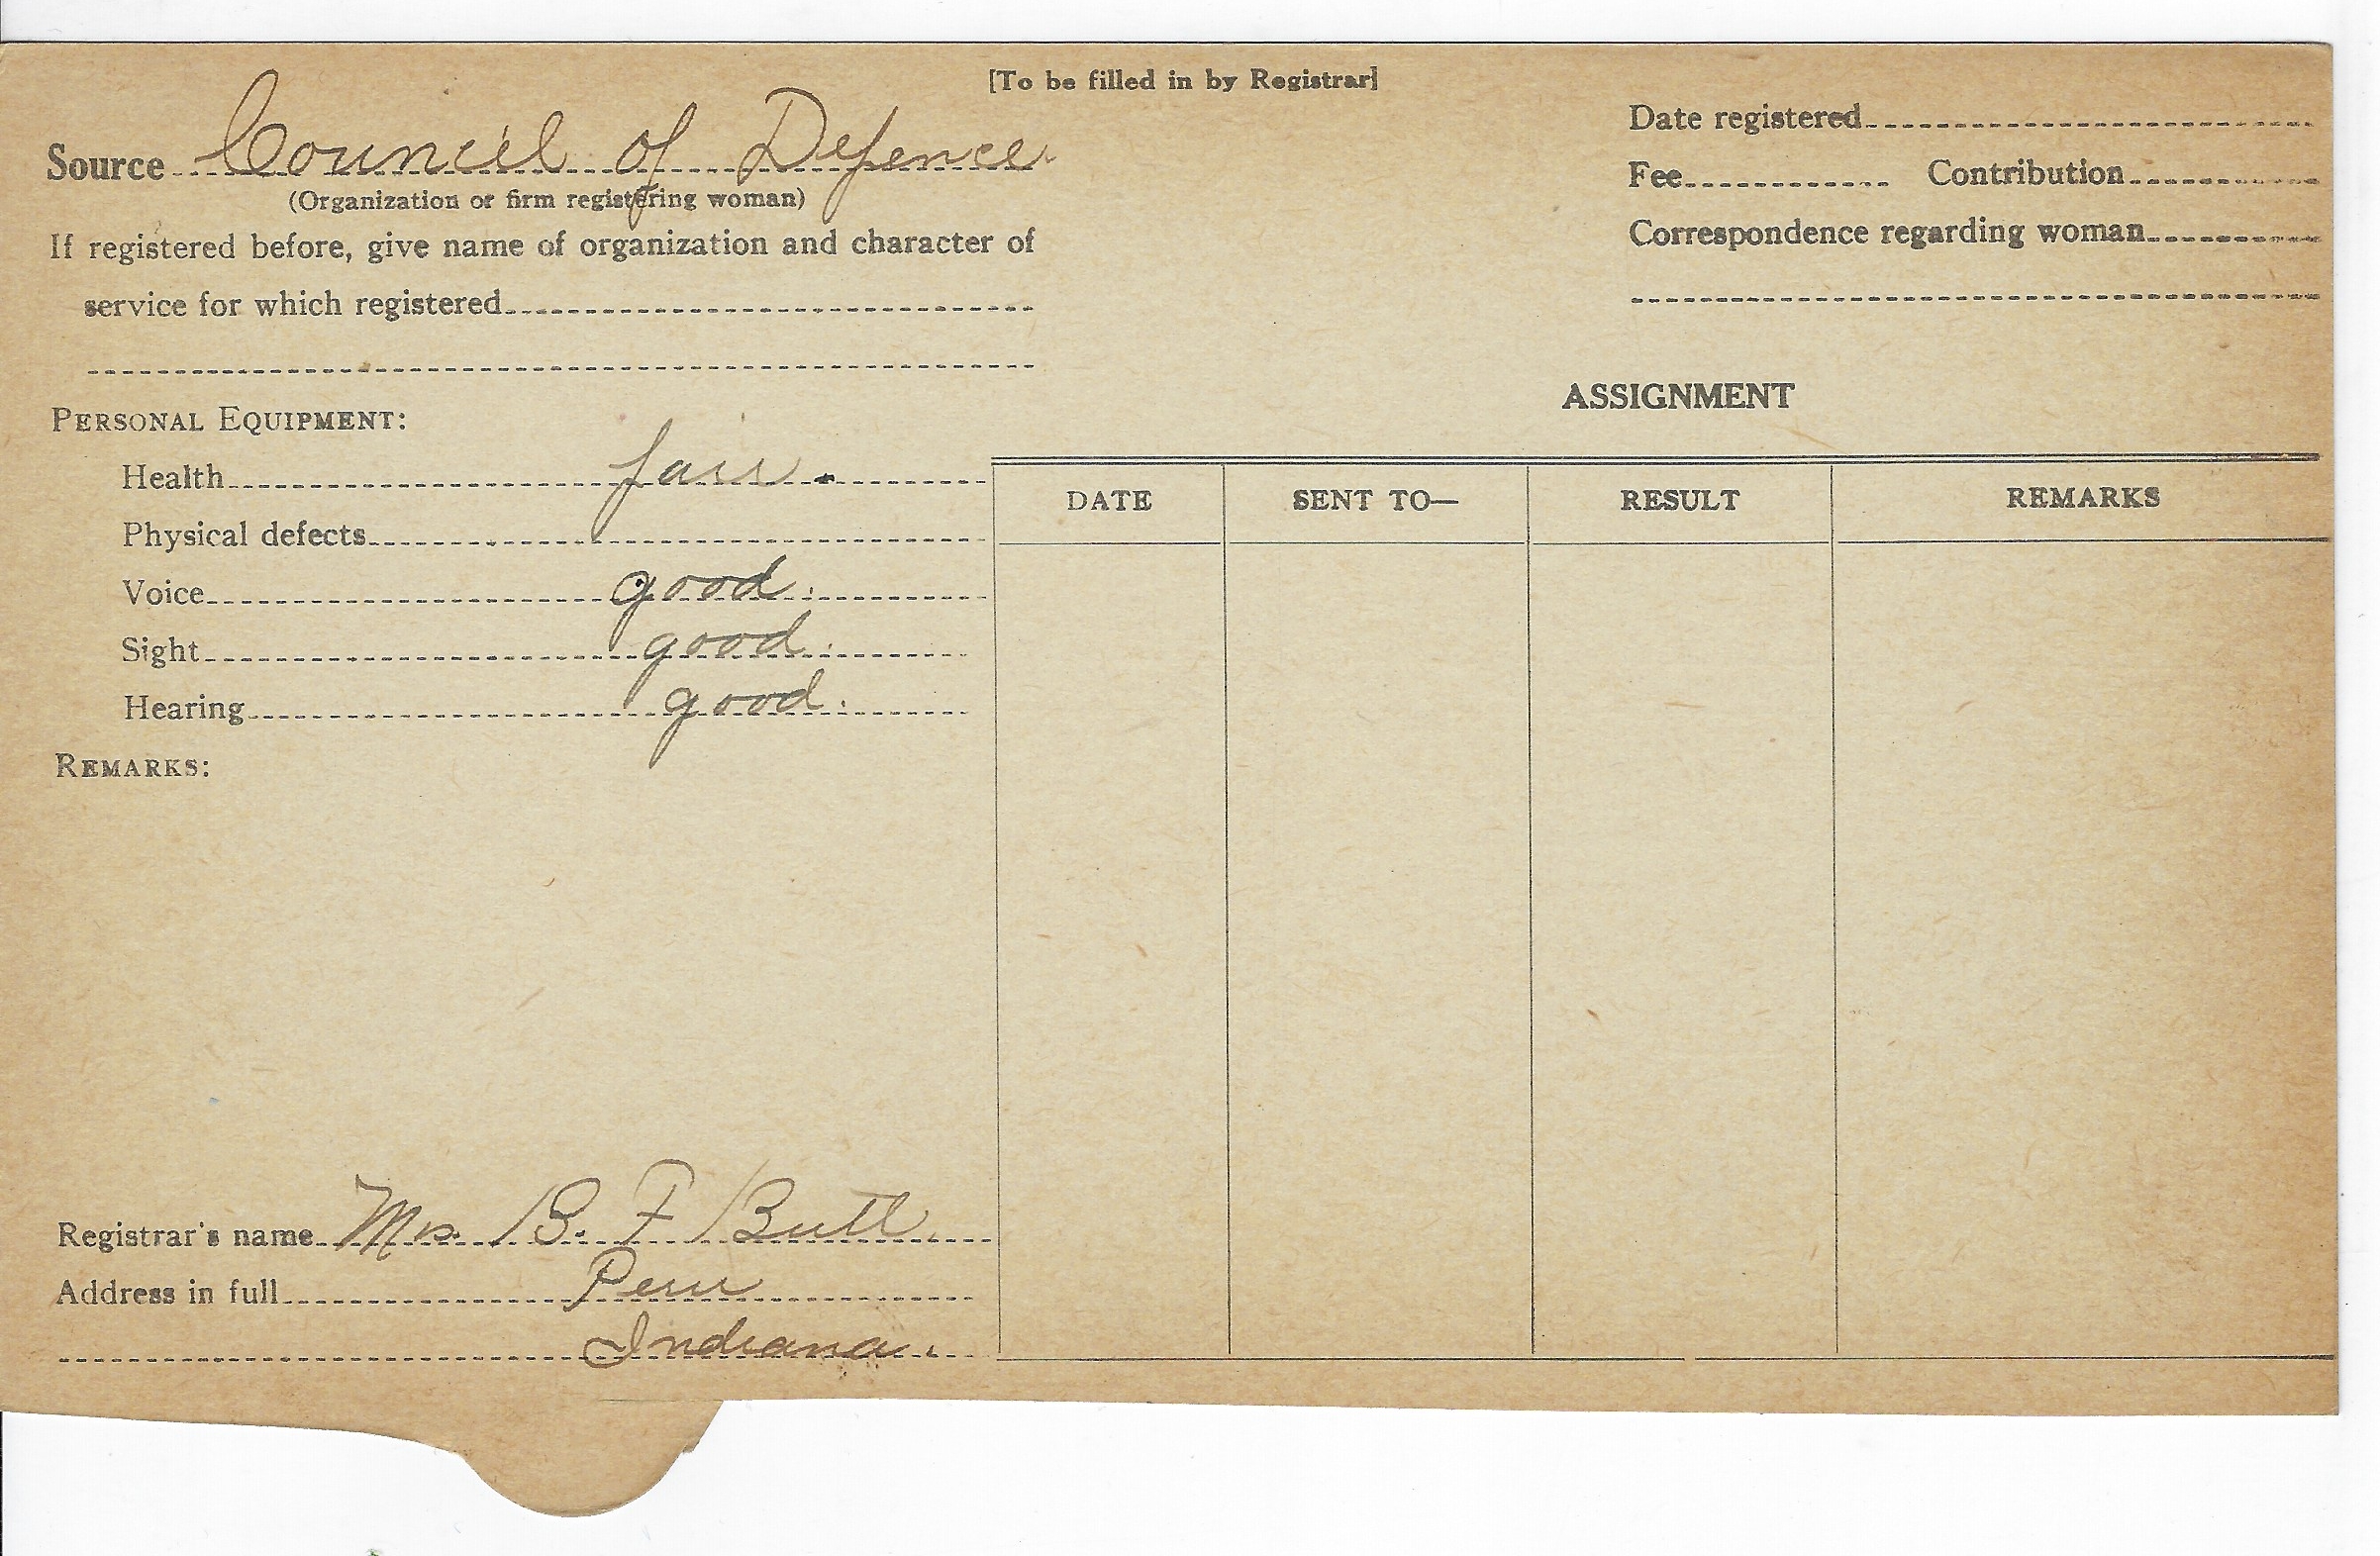 [To be filled in by Registrar]
Source Council of Defence
(Organization or firm registering woman)
If registered before, give name of organization and character of
service for which registered
Date registered
Fee Contribution
Correspondence regarding woman
PERSONAL EQUIPMENT:
Health fair.
Physical defects
Voice good.
Sight good.
Hearing good.
REMARKS:
Registrar's name Mrs. B. F Butt.
Address in full Peru
Indiana.
ASSIGNMENT
DATE SENT TO— RESULT REMARKS